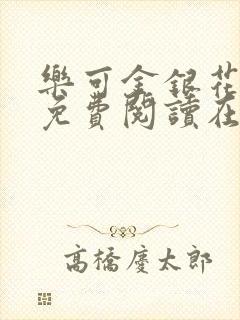 樂可金銀花
免費閱讀在
高橋慶太郎